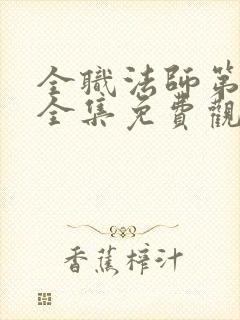 全職法師第
全集免費觀
香蕉榨汁